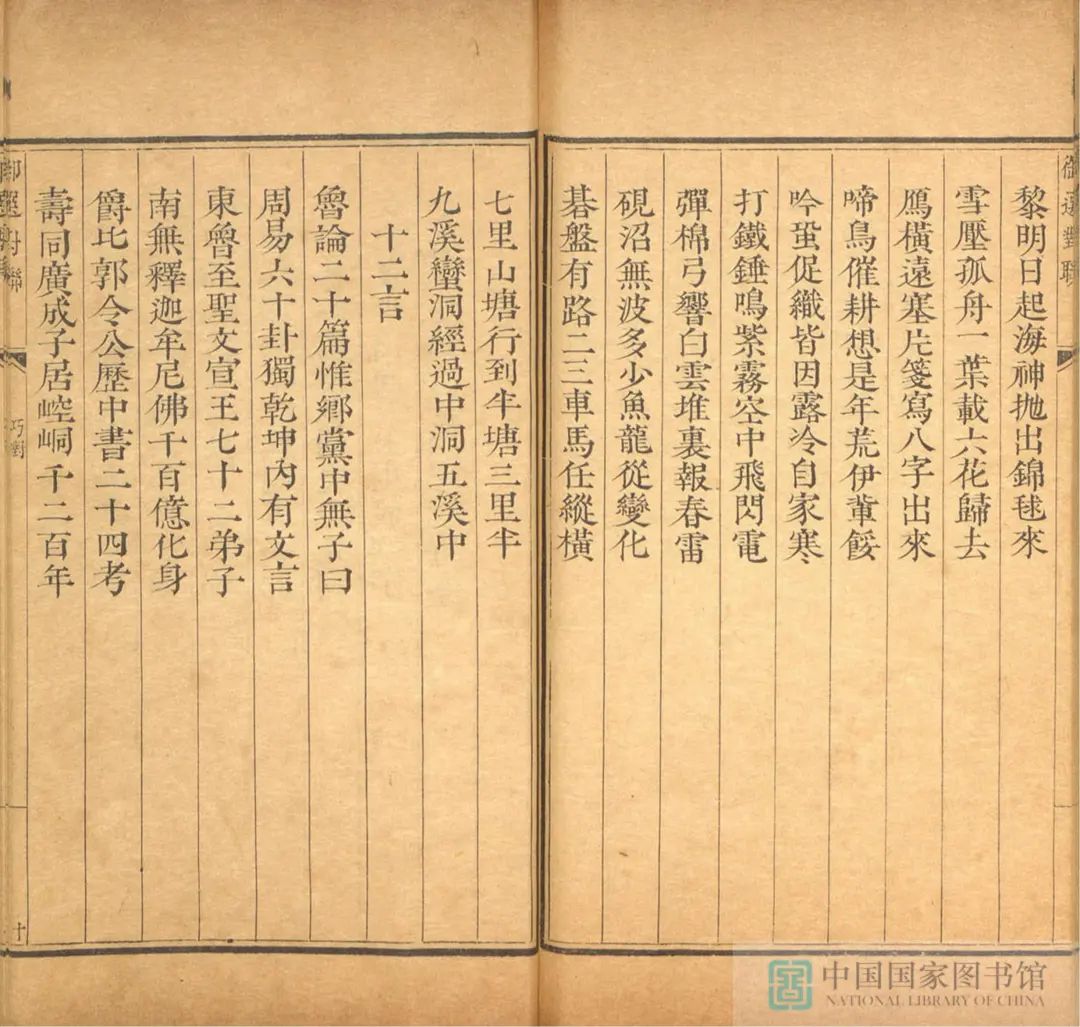 御選對聯
黎明日起海神拋出錦毬來
雪壓孤舟一葉載六花歸去
鴈橫遠塞片箋寫八字出來
啼鳥催耕想是年荒伊軰餒
吟蛩促織皆因露冷自家寒
打鐵錘鳴紫霧空中飛閃電
彈棉弓響白雲堆裏報春雷
硯沼無波多少魚龍從變化
碁盤有路二三車馬任縱橫
七里山塘行到半塘三里半
九溪蠻洞經過中洞五溪中
十二言
魯論二十篇惟鄉黨中無子曰
周易六十卦獨乾坤內有文言
東魯至聖文宣王七十二弟子
南無釋迦牟尼佛千百億化身
爵比郭令公歷中書二十四考
壽同廣成子居崆峒千二百年
御選對聯
巧對
十
中国国家图书馆
NATIONAL LIBRARY OF CHINA